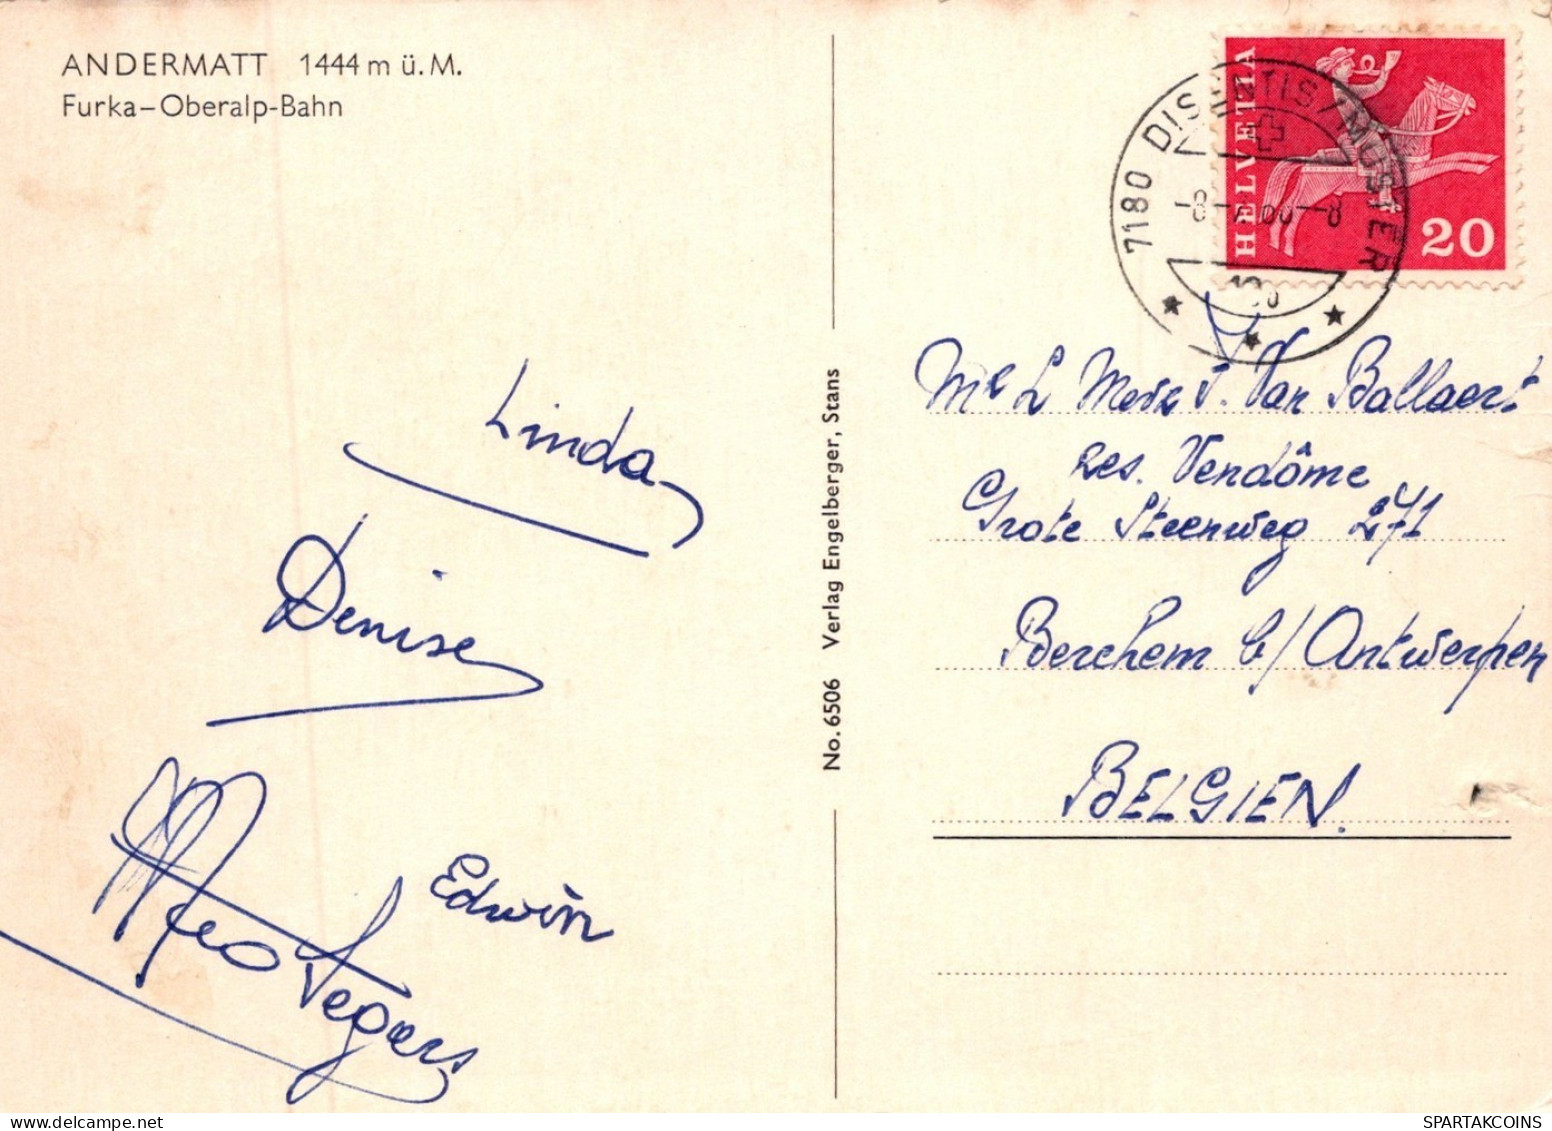 ANDERMATT 1444 m ü. M.
Furka–Oberalp-Bahn
Linda
Denise
Edwin
No. 6506 Verlag Engelberger, Stans
HELVETIA
20
7180 DISENTIS/MUSTER
Van Ballaert
Res. Vendôme
Grote Steenweg 271
Berchem b/ Antwerpen
BELGIEN.
SPARTAKCOINS